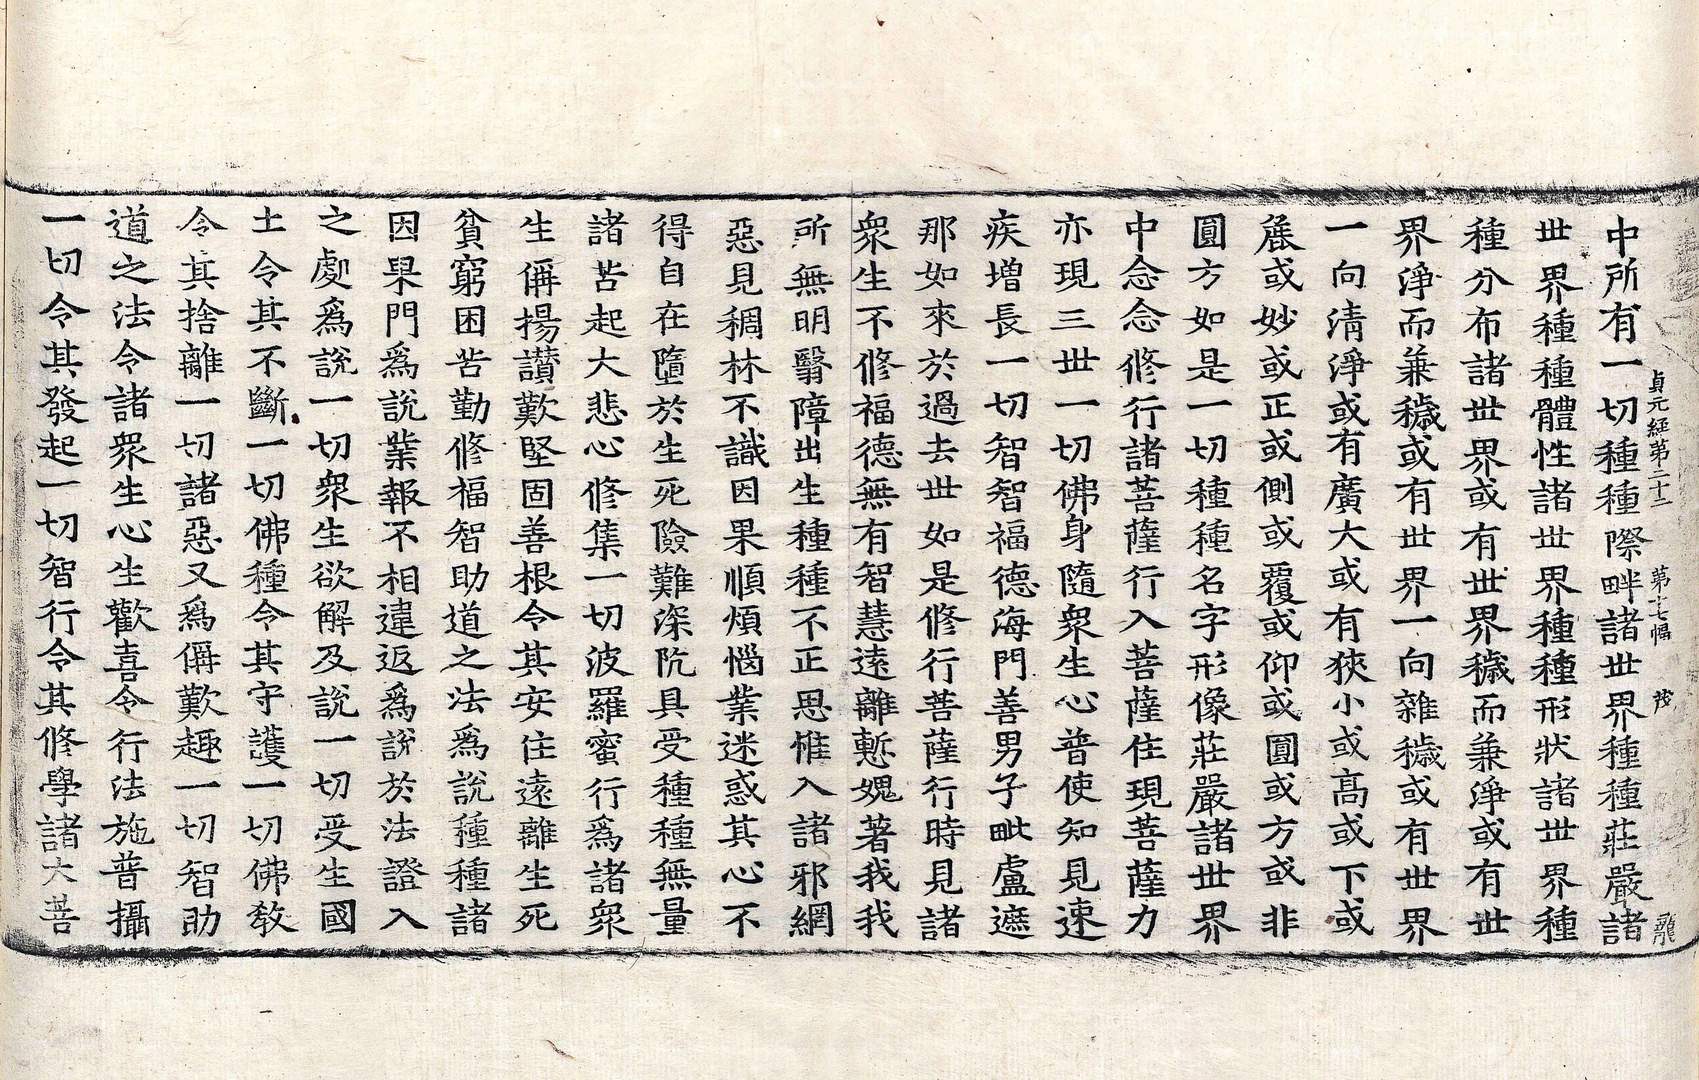 中所有一切種種際畔諸世界種種莊嚴諸
貞元經第二十二　第十七幅　龍
世界種種體性諸世界種種形狀諸世界種
種分布諸世界或有世界穢而兼淨或有世
界淨而兼穢或有世界一向雜穢或有世界
一向清淨或有廣大或有狹小或高或下或
麁或妙或正或側或覆或仰或圓或方或非
圓方如是一切種種名字形像莊嚴諸世界
中念念修行諸菩薩行入菩薩住現菩薩力
亦現三世一切佛身隨眾生心普使知見速
疾增長一切智智福德海門善男子毗盧遮
那如來於過去世如是修行菩薩行時見諸
眾生不修福德無有智慧遠離慙媿著我我
所無明翳障出生種種不正思惟入諸邪網
惡見稠林不識因果順煩惱業迷惑其心不
得自在墮於生死險難深阬具受種種無量
諸苦起大悲心修集一切波羅蜜行為諸眾
生偁揚讚歎堅固善根令其安住遠離生死
貧窮困苦勤修福智助道之法為說種種諸
因果門為說業報不相違返為說於法證入
之處為說一切眾生欲解及說一切受生國
土令其不斷一切佛種令其守護一切佛教
令其捨離一切諸惡又為偁歎趣一切智助
道之法令諸眾生心生歡喜令行法施普攝
一切令其發起一切智行令其修學諸大菩